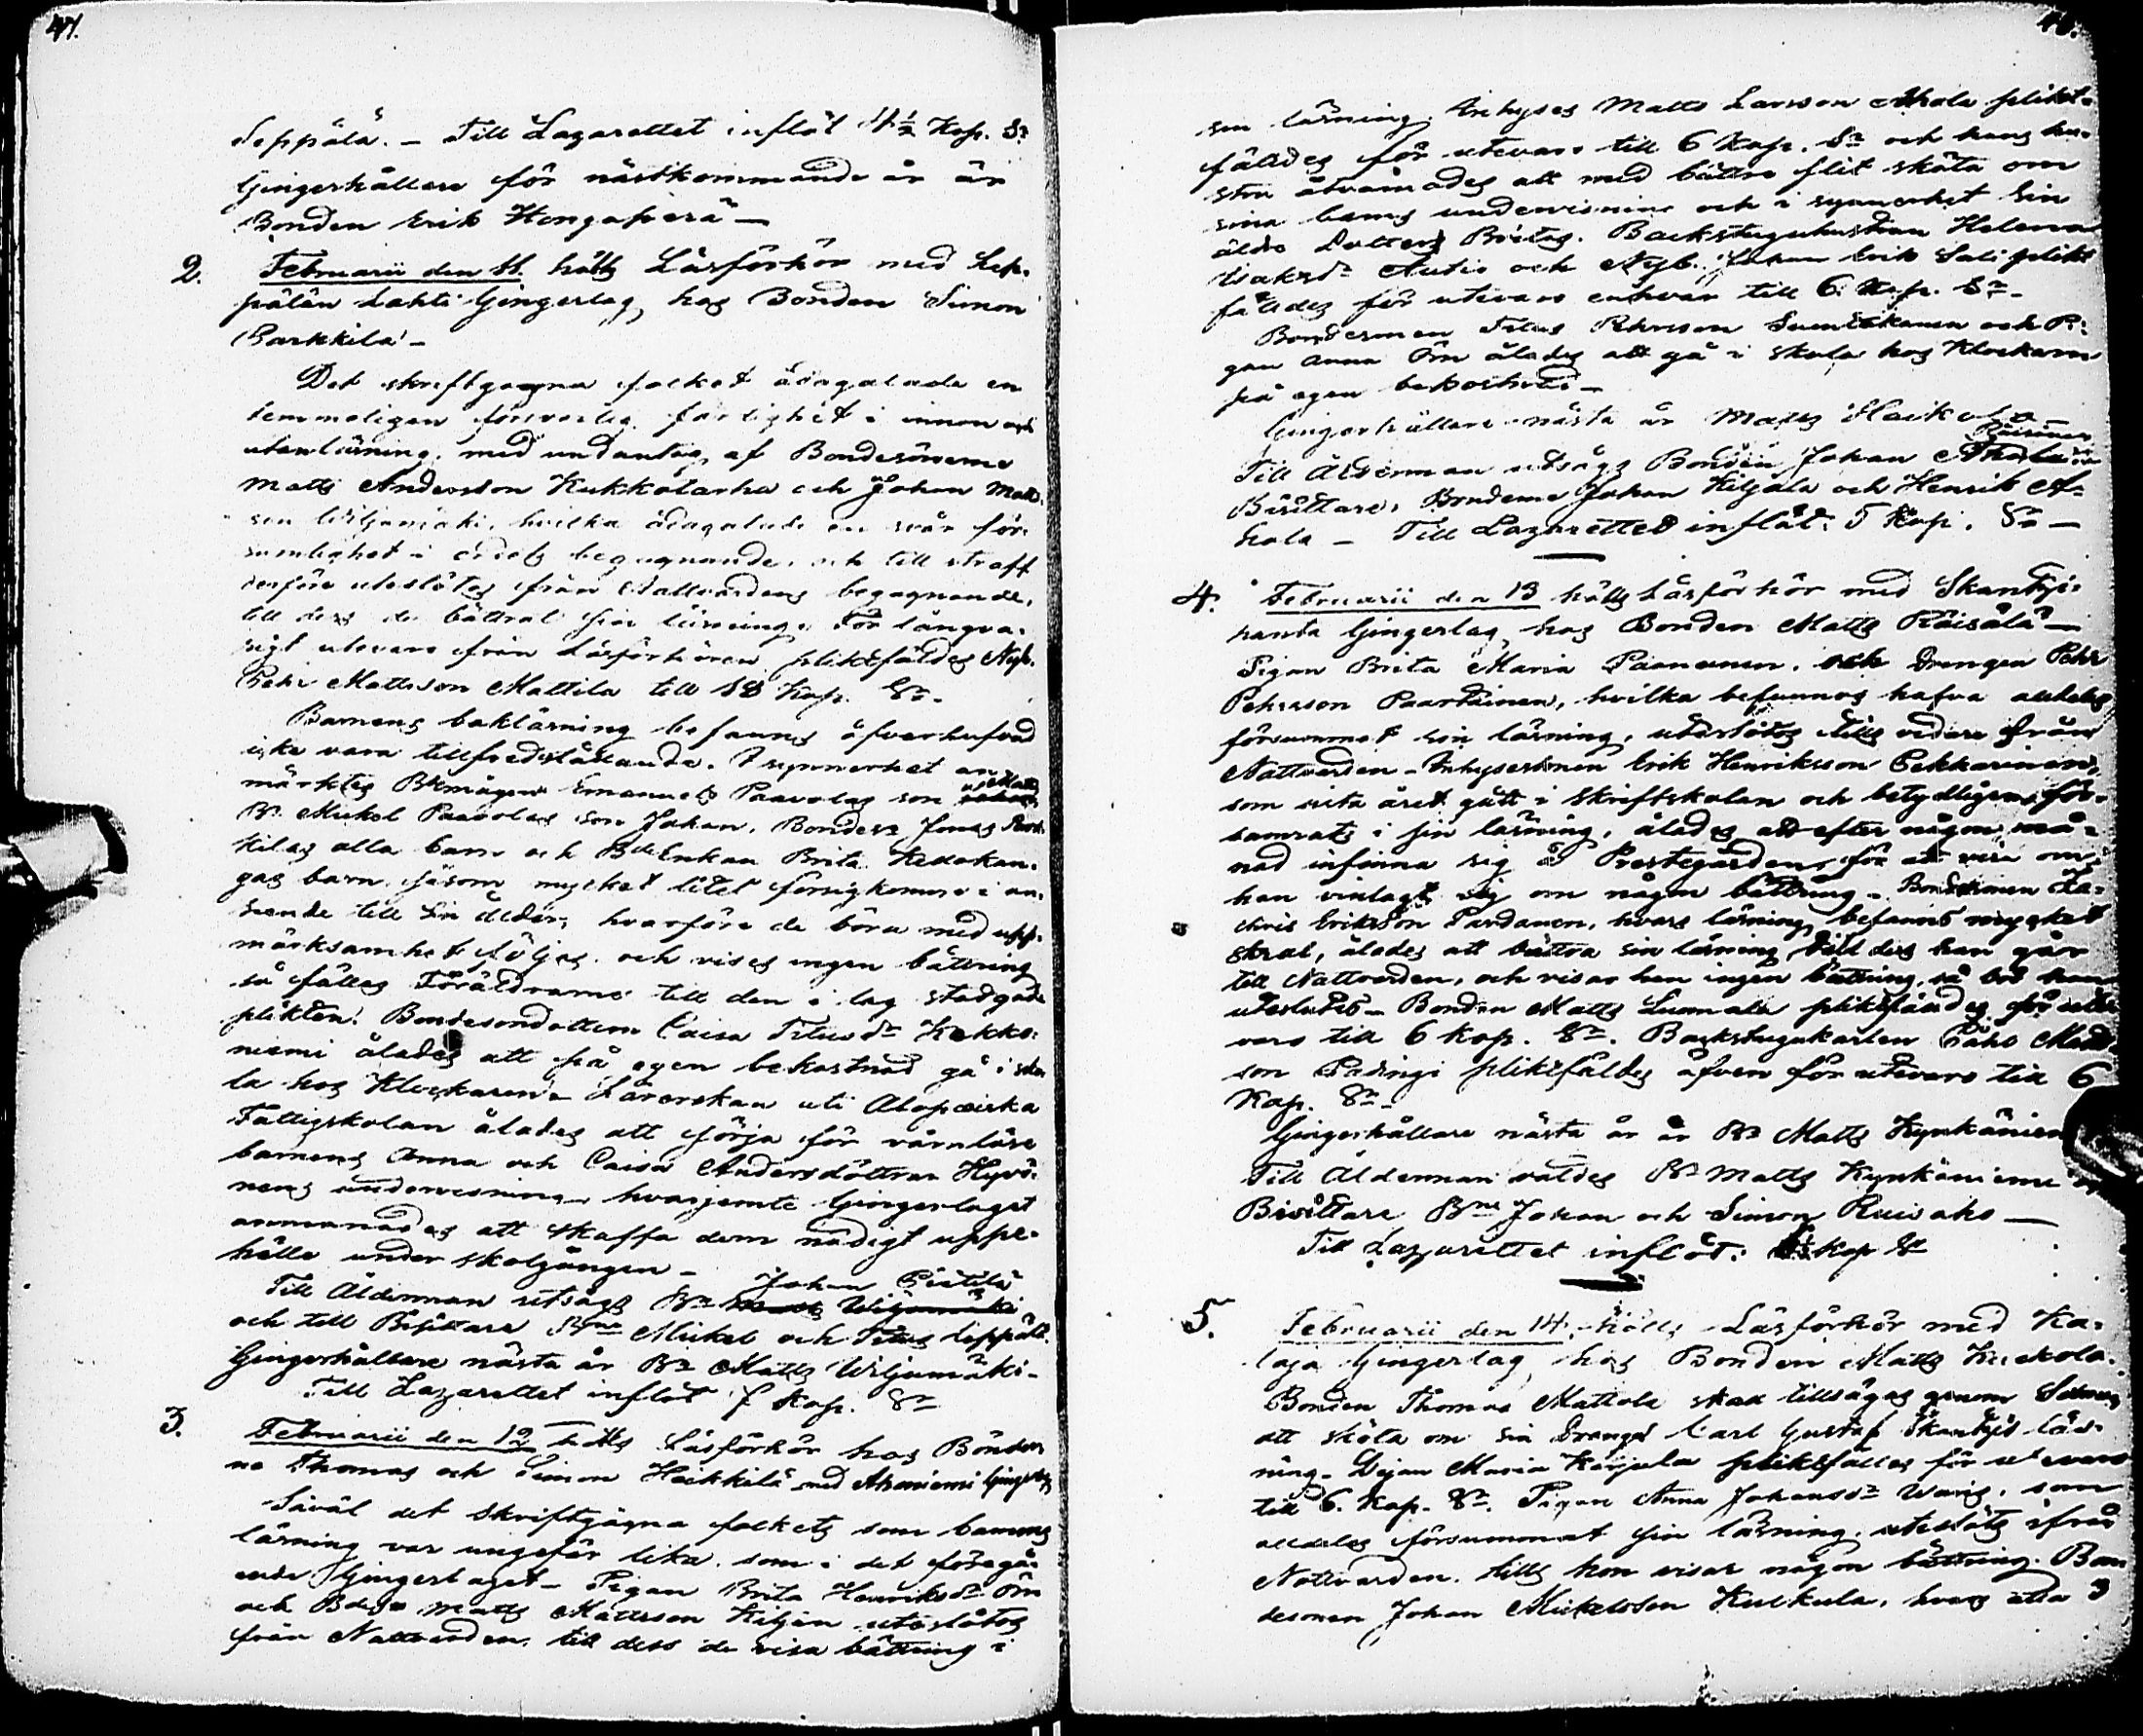 47.
Seppälä. – Till Lazarettet inflöt 4½ Kop. Sr.
Gingerhållare för nästkommande år är
Bonden Erik Hongaperä –
2. Februarii den 11. hölls Läsförhör med Sep-
pälän Lahti Gingerlag, hos Bonden Simon
Parkkila –
Det skriftgagna folket ådagalade en
temmeligen försvarlig färdighet i innan och
utanläsning, med undantag af Bondesönerne
Matts Andersson Kukkolanha och Johan Matts-
son Wiljamäki, hvilka ådagalade en svår för-
sumlighet i ordets begagnande, och till straff
derföre uteslötos från Nattvardens begagnande,
till dess de bättrat sin läsning. För långva-
rigt utevaro från Läsförhören pliktfäldes Nyb.
Pehr Mattsson Mattila till 18 Kop. Sr.
Barnens bokläsning befanns öfverhufvud
icke vara tillfredsställande. I synnerhet an-
märktes Bdemågen Emanuel Paavolas son
Bn Mickel Paavolas son Johan, Bonden Jonas Park-
kilas alla barn och BdeEnkan Brita Kedokan-
gas barn, såsom mycket litet försigkomne i an-
seende till sin ålder, hvarföre de böra med upp-
märksamhet följas, och vises ingen bättring
så fälles Föräldrarne till den i lag stadgade
plikten. Bondesondottern Caisa Titusdr Kokko-
niemi ålades att på egen bekostnad gå i sko-
la hos Klockaren. Lärerskan uti Alopæiska
Fattigskolan ålades att sörja för värnlösa
barnens Anna och Caisa Andersdöttrar Hyvö-
nens undervisning, hvarjemte Gingerlaget
anmanades att skaffa dem nödigt uppe-
hälle under skolgången –
Johan Pietilä
Till Ålderman utsågs Bn Wiljamäki
och till Bisittare Bne Mickel och Titus Seppälä.
Gingerhållare nästa år Bn Matts Wiljamäki –
Till Lazarettet inflöt 5 Kop. Sr
3. Februarii den 12 hölls Läsförhör hos Bönder-
ne Thomas och Simon Heikkilä med Ahoniemi Gingerlag
Såväl det skriftgågna folkets som barnens
läsning var ungefär lika, som i det föregå-
ende Gingerlaget – Pigan Brita Henriksdr Örn
och Bdeson Matts Mattsson Kiljan uteslötos
från Nattvarden, till dess de visa bättring i
48.
sin läsning. Inhyses Matts Larsson Ahola plikt-
fäldes för utevaro till 6 Kop. Sr och hans hu-
stru åtvarnades att med bättre flit sköta om
sina barns undervisning och i synnerhet sin
äldre Dotter Britas. Backstuguhustrun Helena
Isaksdr Autio och Nyb. Johan Erik Sali plikt
fäldes för utevaro enhvar till 6 Kop. Sr –
Bondesonen Titus Pehrsson och Pi-
gan Anna Örn ålades att gå i skola hos Klockaren
på egen bekostnad –
Gingerhållare nästa år Matts Heikkola –
Räisänen
Till Ålderman utsågs Bonden Johan Ahola
Bisittare, Bönderne Johan Kiljala och Henrik A-
hola – Till Lazarettet inflöt: 5 Kop. Sr –
4. Februarii den 13 hölls Läsförhör med Skantzi-
ranta Gingerlag hos Bonden Matts Räisälä –
Pigan Brita Maria Paananen, och Drengen Pehr
Pehrsson Paartainen, hvilka befunnos hafva alldeles
försummat sin läsning, uteslötos tills vidare från
Nattvarden – Inhysessonen Erik Henriksson Pekkarinen,
som sista året gått i skriftskolan och betydligen för-
samrats i sin läsning, ålades att efter någon må-
nad infinna sig å Prestegården, för att visa om
han vinlagt sig om någon bättring – Bondesonen Za-
chris Eriksson Pardanen, hvars läsning befanns mycket
skral, ålades att bättra sin läsning till dess han går
till Nattvarden, och visar han ingen bättring, så bör han
uteslutas – Bonden Matts Luomala pliktfäldes för ute-
varo till 6 Kop. Sr. Backstugukarlen Påhl Matts-
son Pasingi pliktfäldes äfven för utevaro till 6
Kop. Sr –
Gingerhållare nästa år är Bn Matts Kynkäniemi
Till Ålderman valdes Bn Matts Kynkäniemi och
Bisittare Bne Johan och Simon Ruisaho –
Till Lazarettet inflöt: Kop Sr
5. Februarii den 14. hölls Läsförhör med Ka-
laja Gingerlag hos Bonden Matts Kuckola.
Bonden Thomas Mattola skall tillsägas genom
att sköta om sin Drengs Carl Gustaf Skantzis läs-
ning. Dejan Maria Karjula pliktfälles för utevaro
till 6. Kop. Sr. Pigan Anna Johansdr Waris, som
alldeles försummat sin läsning, uteslöts ifrån
Nattvarden, tills hon visar någon bättring. Bon-
desonen Johan Mickelsson Kuckula, hvars alla 3